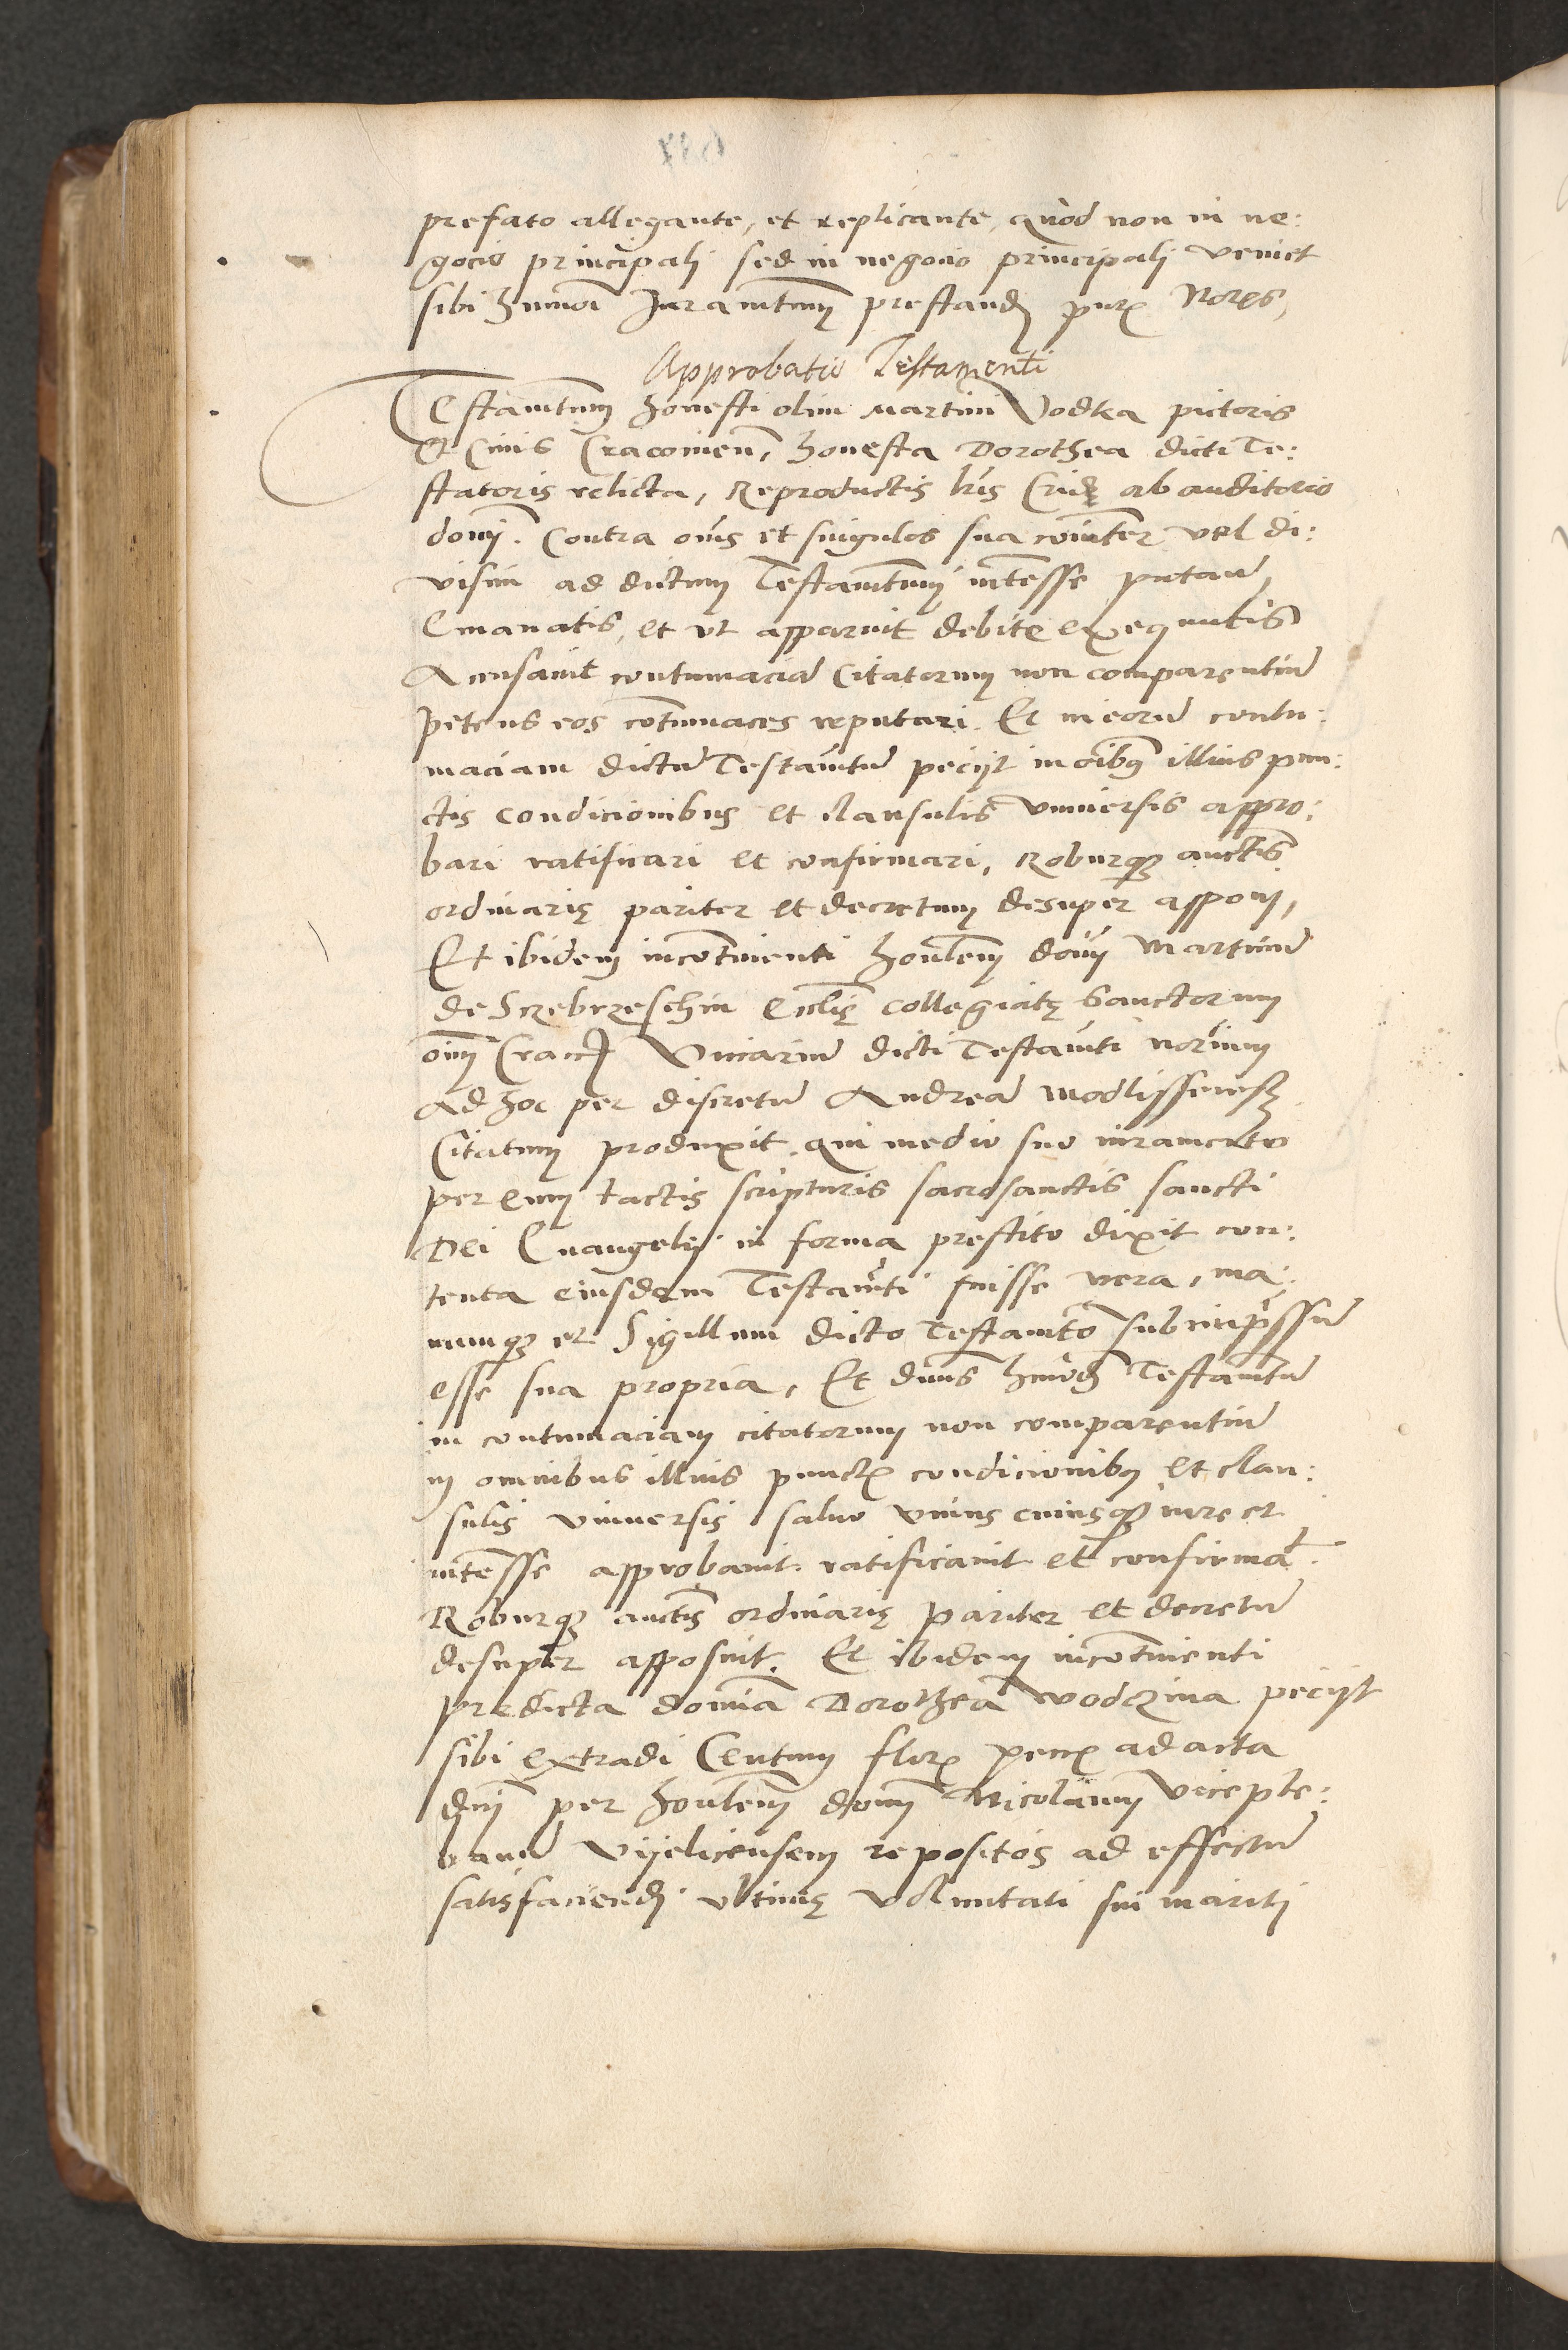 prefato allegante, et replicante, quod non in ne:
gocio principali sed in negocio principali veniet
sibi Juramtum prestand
Approbatio Testamenti
Testamtum honesti olim Martini Vodka pictoris
et Civis Cracovien, honesta Dorothea dicti Te:
statoris relicta, Reproductis lris ab auditorio
domi. Contra oms et singulos sua coniter vel di:
visim ad dictum Testamtum intesse putan,
Emanatis, et vt apparuit debite exequutis
Accusavit contumaciã Citatorum non comparentiũ
petens eos cotumaces reputari. Et in eorũ contu:
maciam dictũ Testamtũ peciit in oibus illius pun:
ctis condicionibus et clausulis vniuersis appro:
bari ratificari et confirmari, Roburque auctis
ordinarię pariter et decretum desuper apponi,
Et ibidem incotinenti honlem dom Martinũ
de Sczebrzeschin Ecclię collegiatę Sanctorum
oim Crac Vicariũ dicti Testamti
Ad hoc per discretũ Andreã
Citatum produxit, qui medio suo iuramento
per eum tactis scripturis sacrosanctis sancti
Dei Euangelij in forma prestito dixit con:
tenta eiusdem Testamti fuisse vera, ma:
numque et Sigillum dicto Testamto subimpssũ
esse sua propria, Et dnus hmoi Testamtũ
in contumaciam citatorum non comparentiũ
in omnibus illius punct condicionibus et clau:
sulis vniuersis saluo vnius cuiusque iure et
intesse approbauit. ratificauit et confirmat.
Roburque auctis ordinarię pariter et decretũ
desuper apposuit. Et ibidem incotinenti
predicta domina Dorothea Wodczina peciit
sibi extradi Centum flor ad acta
dni per honlem dom Nicolaum viceple:
banũ Vijelicensem repositos ad effectũ
satisfaciendi vltimę voluntati sui mariti